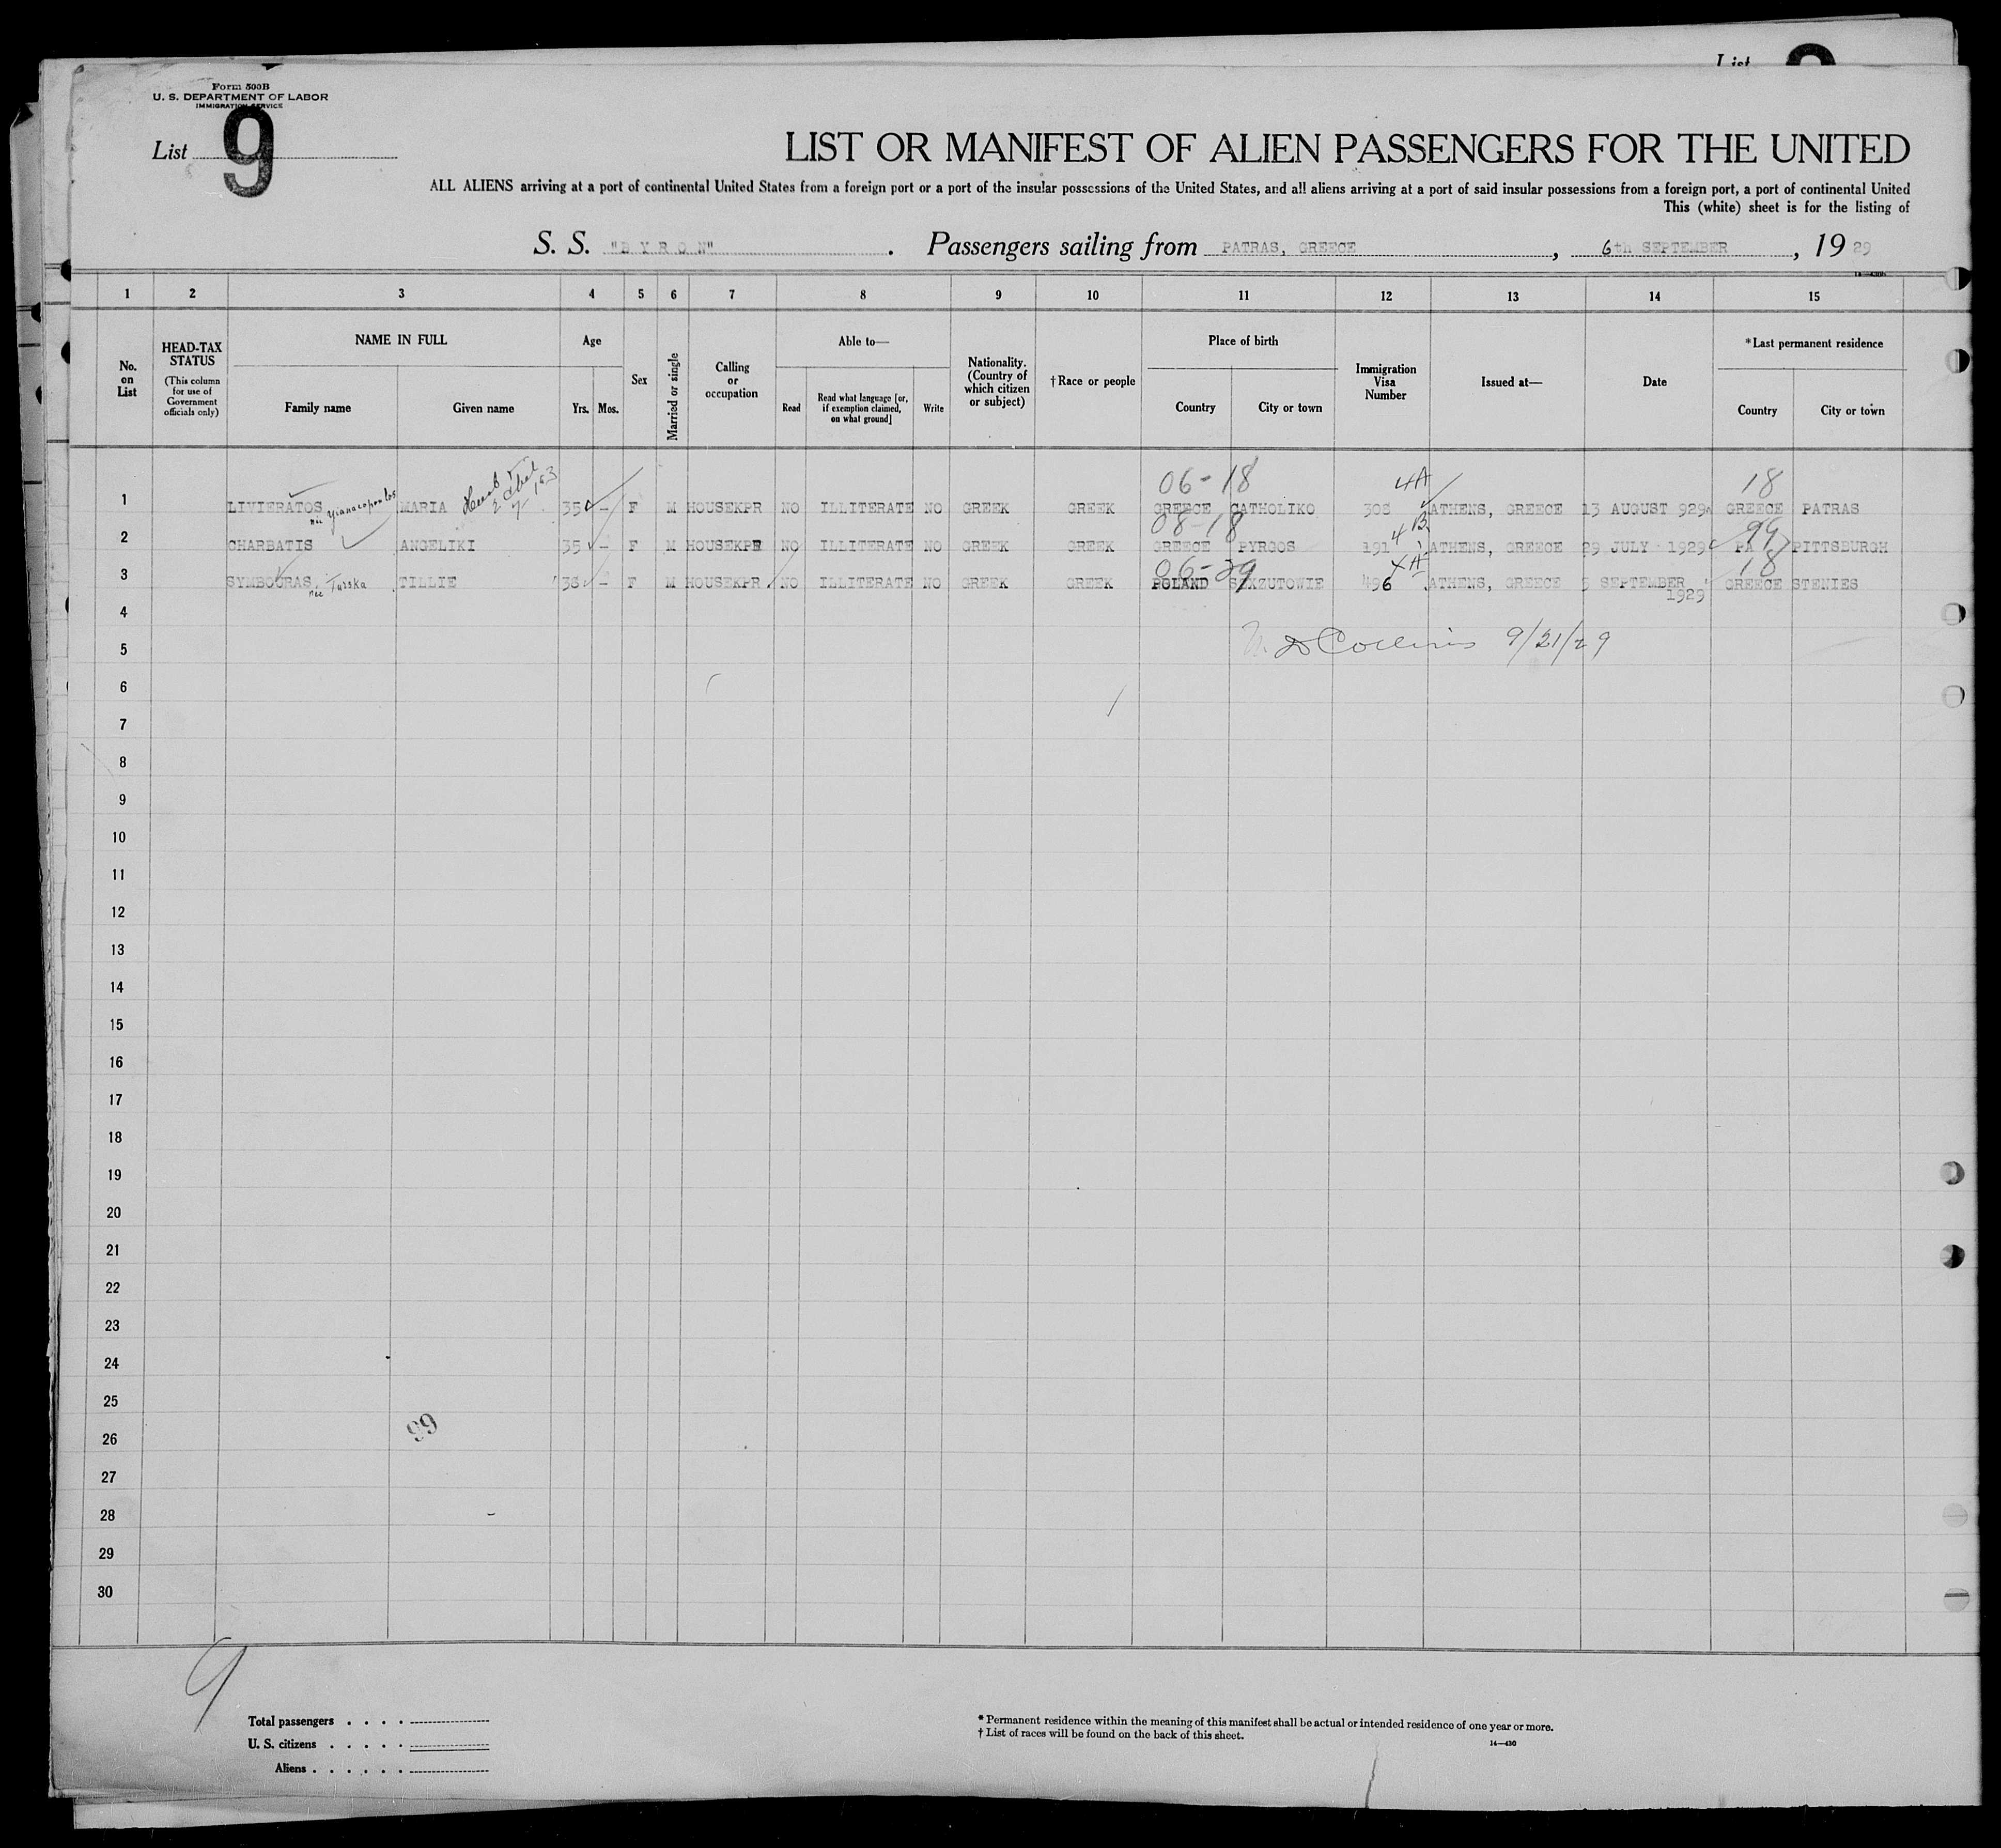 List
Form 500B
U. S. DEPARTMENT OF LABOR
IMMIGRATION SERVICE
List 9
LIST OR MANIFEST OF ALIEN PASSENGERS FOR THE UNITED
ALL ALIENS arriving at a port of continental United States from a foreign port or a port of the insular possessions of the United States, and all aliens arriving at a port of said insular possessions from a foreign port, a port of continental United
This (white) sheet is for the listing of
S. S. "BYRON". Passengers sailing from PATRAS, GREECE, 6th SEPTEMBER, 1929
1 2 3 4 5 6 7 8 9 10 11 12 13 14 15
No. on List
HEAD-TAX STATUS (This column for use of Government officials only)
NAME IN FULL Family name Given name
Age Yrs. Mos.
Sex
Married or single
Calling or occupation
Able to— Read Read what language [or, if exemption claimed, on what ground] Write
Nationality. (Country of which citizen or subject)
†Race or people
Place of birth Country City or town
Immigration Visa Number
Issued at—
Date
*Last permanent residence Country City or town
06-18 4A 18
1 LIVIERATOS née Yianacopoulos MARIA 35 – F M HOUSEKPR NO ILLITERATE NO GREEK GREEK GREECE CATHOLIKO 308 ATHENS, GREECE 13 AUGUST 929 GREECE PATRAS
08-18 4B 99
2 CHARBATIS ANGELIKI 35 – F M HOUSEKPR NO ILLITERATE NO GREEK GREEK GREECE PYRGOS 191 ATHENS, GREECE 29 JULY 1929 PA PITTSBURGH
06-29 4A 18
3 SYMBOURAS, née Turska TILLIE 36 – F M HOUSEKPR NO ILLITERATE NO GREEK GREEK POLAND 496 ATHENS, GREECE 5 SEPTEMBER 1929 GREECE STENIES
4
5 Collins 9/21/29
6
7
8
9
10
11
12
13
14
15
16
17
18
19
20
21
22
23
24
25
99
26
27
28
29
30
9
Total passengers . . . .
U. S. citizens . . . . .
Aliens . . . . . .
* Permanent residence within the meaning of this manifest shall be actual or intended residence of one year or more.
† List of races will be found on the back of this sheet.
14—430